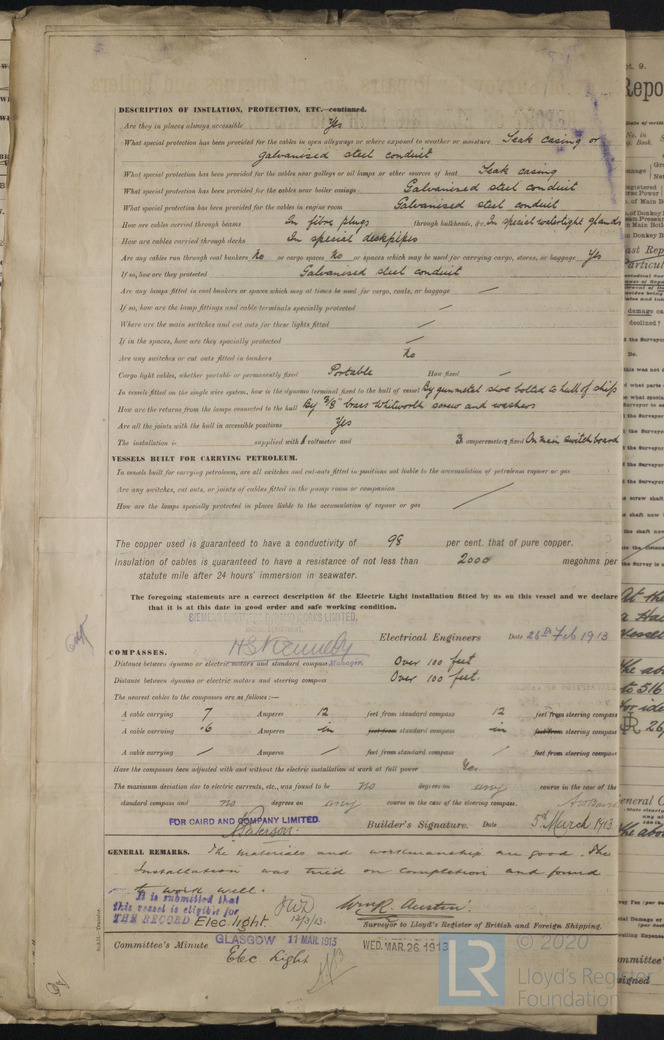 DESCRIPTION OF INSULATION, PROTECTION, ETC.—continued.
Are they in places always accessible Yes
What special protection has been provided for the cables in open alleyways or where exposed to weather or moisture Leak casing or
galvanised steel conduit
What special protection has been provided for the cables near galleys or oil lamps or other sources of heat Leak casing
What special protection has been provided for the cables near boiler casings Galvanised steel conduit
What special protection has been provided for the cables in engine room Galvanised steel conduit
How are cables carried through beams In fibre plugs through bulkheads, &c. In special watertight glands
How are cables carried through decks In special deckpipes
Are any cables run through coal bunkers No or cargo spaces No or spaces which may be used for carrying cargo, stores, or baggage Yes
If so, how are they protected Galvanised steel conduit
Are any lamps fitted in coal bunkers or spaces which may at times be used for cargo, coals, or baggage —
If so, how are the lamp fittings and cable terminals specially protected —
Where are the main switches and cut outs for these lights fitted —
If in the spaces, how are they specially protected —
Are any switches or cut outs fitted in bunkers No
Cargo light cables, whether portable or permanently fixed Portable How fixed —
In vessels fitted on the single wire system, how is the dynamo terminal fixed to the hull of vessel By gunmetal shoe bolted to hull of ship
How are the returns from the lamps connected to the hull By 3/8" brass Whitworth screw and washers
Are all the joints with the hull in accessible positions Yes
The installation is supplied with 1 voltmeter and 3 amperemeters fixed On main switchboard
VESSELS BUILT FOR CARRYING PETROLEUM.
In vessels built for carrying petroleum, are all switches and cut-outs fitted in positions not liable to the accumulation of petroleum vapour or gas
Are any switches, cut outs, or joints of cables fitted in the pump room or companion
How are the lamps specially protected in places liable to the accumulation of vapour or gas
The copper used is guaranteed to have a conductivity of 98 per cent. that of pure copper.
Insulation of cables is guaranteed to have a resistance of not less than 2000 megohms per
statute mile after 24 hours' immersion in seawater.
The foregoing statements are a correct description of the Electric Light installation fitted by us on this vessel and we declare
that it is at this date in good order and safe working condition.
SIEMENS BROTHERS DYNAMO WORKS LIMITED,
H S Kennedy Electrical Engineers Date 26th Feb 1913
COMPASSES.
Manager.
Distance between dynamo or electric motors and standard compass Over 100 feet
Distance between dynamo or electric motors and steering compass Over 100 feet.
The nearest cables to the compasses are as follows:—
A cable carrying 7 Amperes 12 feet from standard compass 12 feet from steering compass
A cable carrying .6 Amperes in feet from standard compass in feet from steering compass
A cable carrying / Amperes / feet from standard compass / feet from steering compass
Have the compasses been adjusted with and without the electric installation at work at full power Yes.
The maximum deviation due to electric currents, etc., was found to be no degrees on any course in the case of the
standard compass and no degrees on any course in the case of the steering compass.
FOR CAIRD AND COMPANY LIMITED.
Builder's Signature. Date 5th March 1913
GENERAL REMARKS. The materials and workmanship are good. The
installation was tried on completion and found
to work well.
It is submitted that
this vessel is eligible for
THE RECORD Elec. light. 12/3/13.
Wm R. Austin.
Surveyor to Lloyd's Register of British and Foreign Shipping.
Committee's Minute GLASGOW 11 MAR. 1913 WED. MAR. 26 1913
Elec Light
© 2020
LR
Lloyd's Register
Foundation